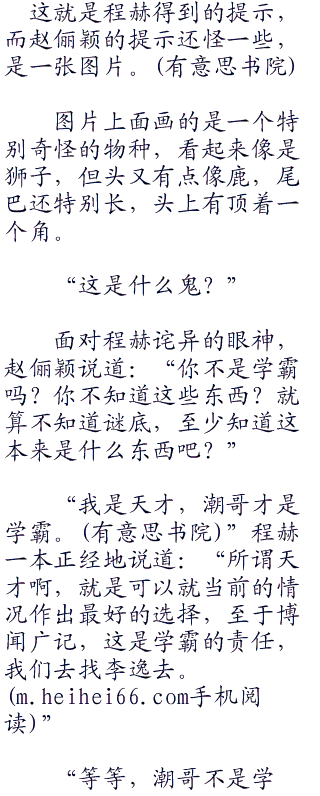 这就是程赫得到的提示，
而赵俪颖的提示还怪一些，
是一张图片。(有意思书院)
图片上面画的是一个特
别奇怪的物种，看起来像是
狮子，但头又有点像鹿，尾
巴还特别长，头上有顶着一
个角。
“这是什么鬼？”
面对程赫诧异的眼神，
赵俪颖说道：“你不是学霸
吗？你不知道这些东西？就
算不知道谜底，至少知道这
本来是什么东西吧？”
“我是天才，潮哥才是
学霸。(有意思书院)”程赫
一本正经地说道：“所谓天
才啊，就是可以就当前的情
况作出最好的选择，至于博
闻广记，这是学霸的责任，
我们去找李逸去。
(m.heihei66.com手机阅
读)”
“等等，潮哥不是学